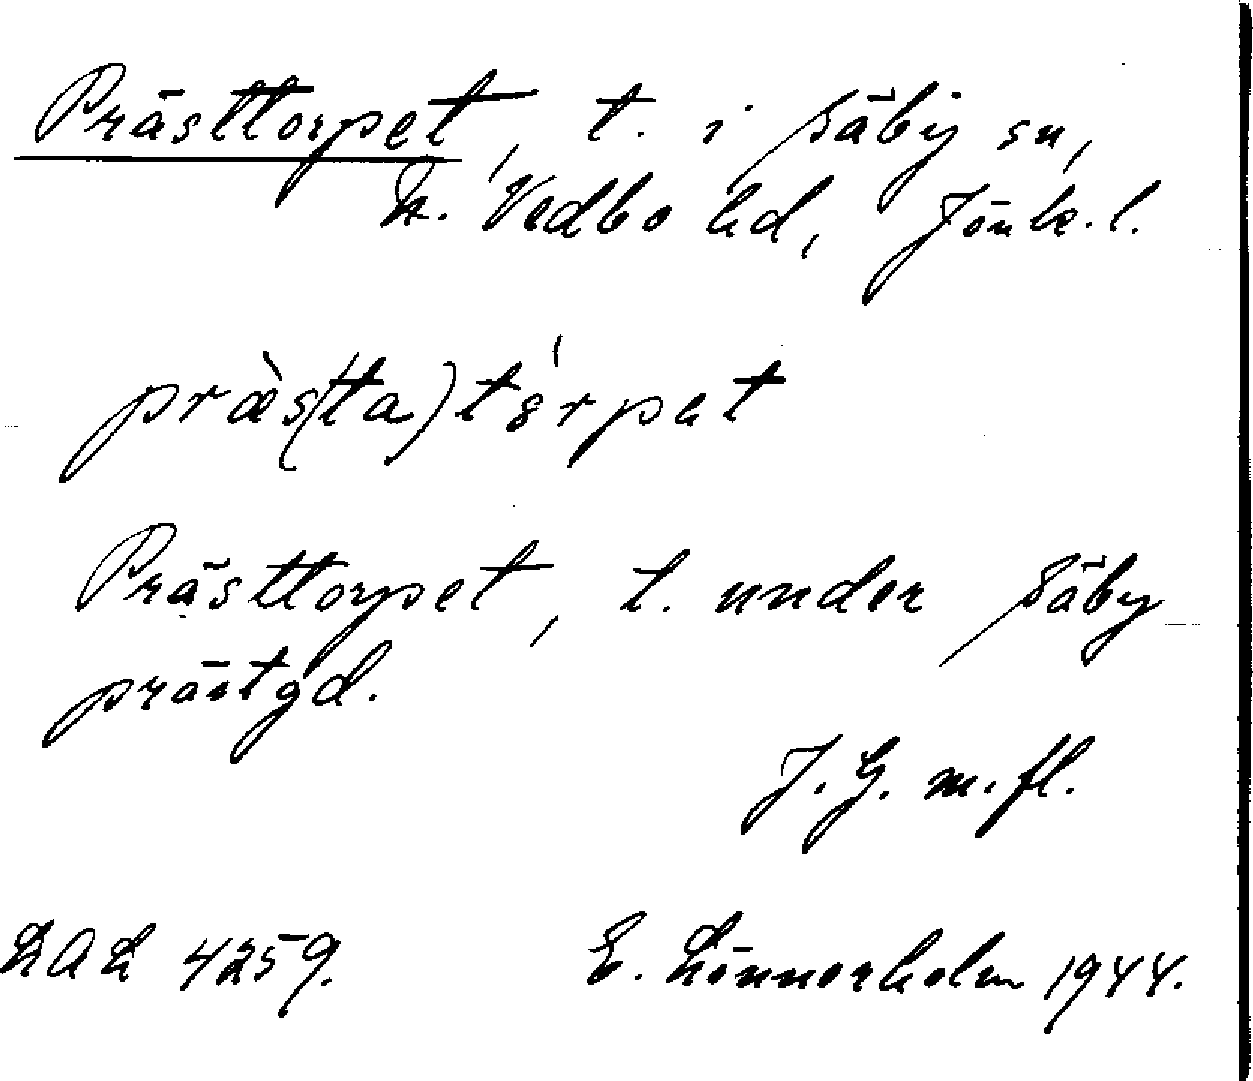 Prästtorpet, t. i Säby sn,
N. Vedbo hd, Jönk. l.
præ̀s(ta)tórpat
Prästtorpet, t. under Säby
prästgd.
J. G. m. fl.
LAL 4259.
E. Lönnerholm 1944.